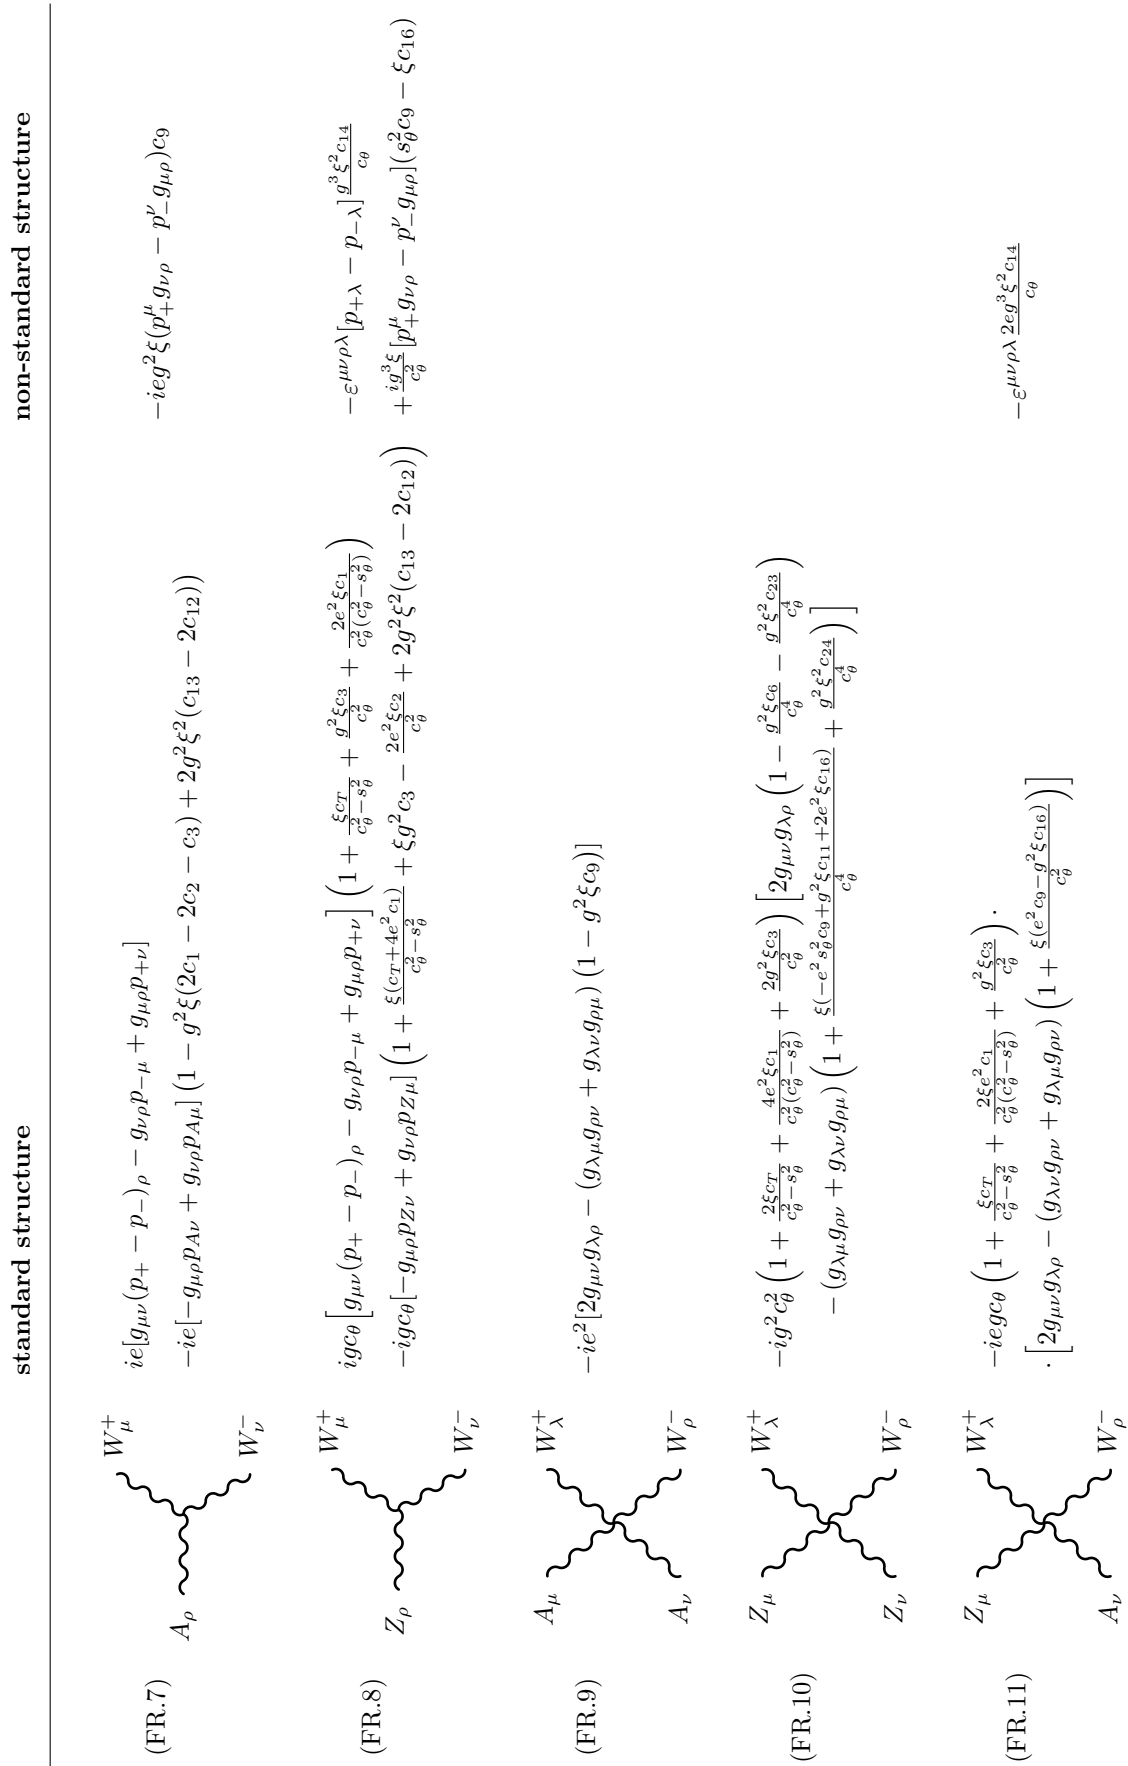 standard structure non-standard structure
(FR.7) A_ρ W^+_μ W^-_ν
ie[g_{μν}(p_+ − p_−)_ρ − g_{νρ}p_{−μ} + g_{μρ}p_{+ν}]
−ie[−g_{μρ}p_{Aν} + g_{νρ}p_{Aμ}] (1 − g^2ξ(2c_1 − 2c_2 − c_3) + 2g^2ξ^2(c_{13} − 2c_{12}))
−ieg^2ξ(p^μ_+ g_{νρ} − p^ν_− g_{μρ})c_9
(FR.8) Z_ρ W^+_μ W^-_ν
igc_θ [g_{μν}(p_+ − p_−)_ρ − g_{νρ}p_{−μ} + g_{μρ}p_{+ν}] (1 + \frac{ξc_T}{c^2_θ−s^2_θ} + \frac{g^2ξc_3}{c^2_θ} + \frac{2e^2ξc_1}{c^2_θ(c^2_θ−s^2_θ)})
−igc_θ[−g_{μρ}p_{Zν} + g_{νρ}p_{Zμ}] (1 + \frac{ξ(c_T+4e^2c_1)}{c^2_θ−s^2_θ} + ξg^2c_3 − \frac{2e^2ξc_2}{c^2_θ} + 2g^2ξ^2(c_{13} − 2c_{12}))
−ε^{μνρλ}[p_{+λ} − p_{−λ}]\frac{g^3ξ^2c_{14}}{c_θ}
+\frac{ig^3ξ}{c^2_θ}[p^μ_+ g_{νρ} − p^ν_− g_{μρ}](s^2_θc_9 − ξc_{16})
(FR.9) A_μ A_ν W^+_λ W^-_ρ
−ie^2[2g_{μν}g_{λρ} − (g_{λμ}g_{ρν} + g_{λν}g_{ρμ}) (1 − g^2ξc_9)]
(FR.10) Z_μ Z_ν W^+_λ W^-_ρ
−ig^2c^2_θ (1 + \frac{2ξc_T}{c^2_θ−s^2_θ} + \frac{4e^2ξc_1}{c^2_θ(c^2_θ−s^2_θ)} + \frac{2g^2ξc_3}{c^2_θ}) [2g_{μν}g_{λρ} (1 − \frac{g^2ξc_6}{c^4_θ} − \frac{g^2ξ^2c_{23}}{c^4_θ})
− (g_{λμ}g_{ρν} + g_{λν}g_{ρμ}) (1 + \frac{ξ(−e^2s^2_θc_9+g^2ξc_{11}+2e^2ξc_{16})}{c^4_θ} + \frac{g^2ξ^2c_{24}}{c^4_θ})]
(FR.11) Z_μ A_ν W^+_λ W^-_ρ
−iegc_θ (1 + \frac{ξc_T}{c^2_θ−s^2_θ} + \frac{2ξe^2c_1}{c^2_θ(c^2_θ−s^2_θ)} + \frac{g^2ξc_3}{c^2_θ}) ·
· [2g_{μν}g_{λρ} − (g_{λν}g_{ρν} + g_{λμ}g_{ρν}) (1 + \frac{ξ(e^2c_9−g^2ξc_{16})}{c^2_θ})]
−ε^{μνρλ}\frac{2eg^3ξ^2c_{14}}{c_θ}